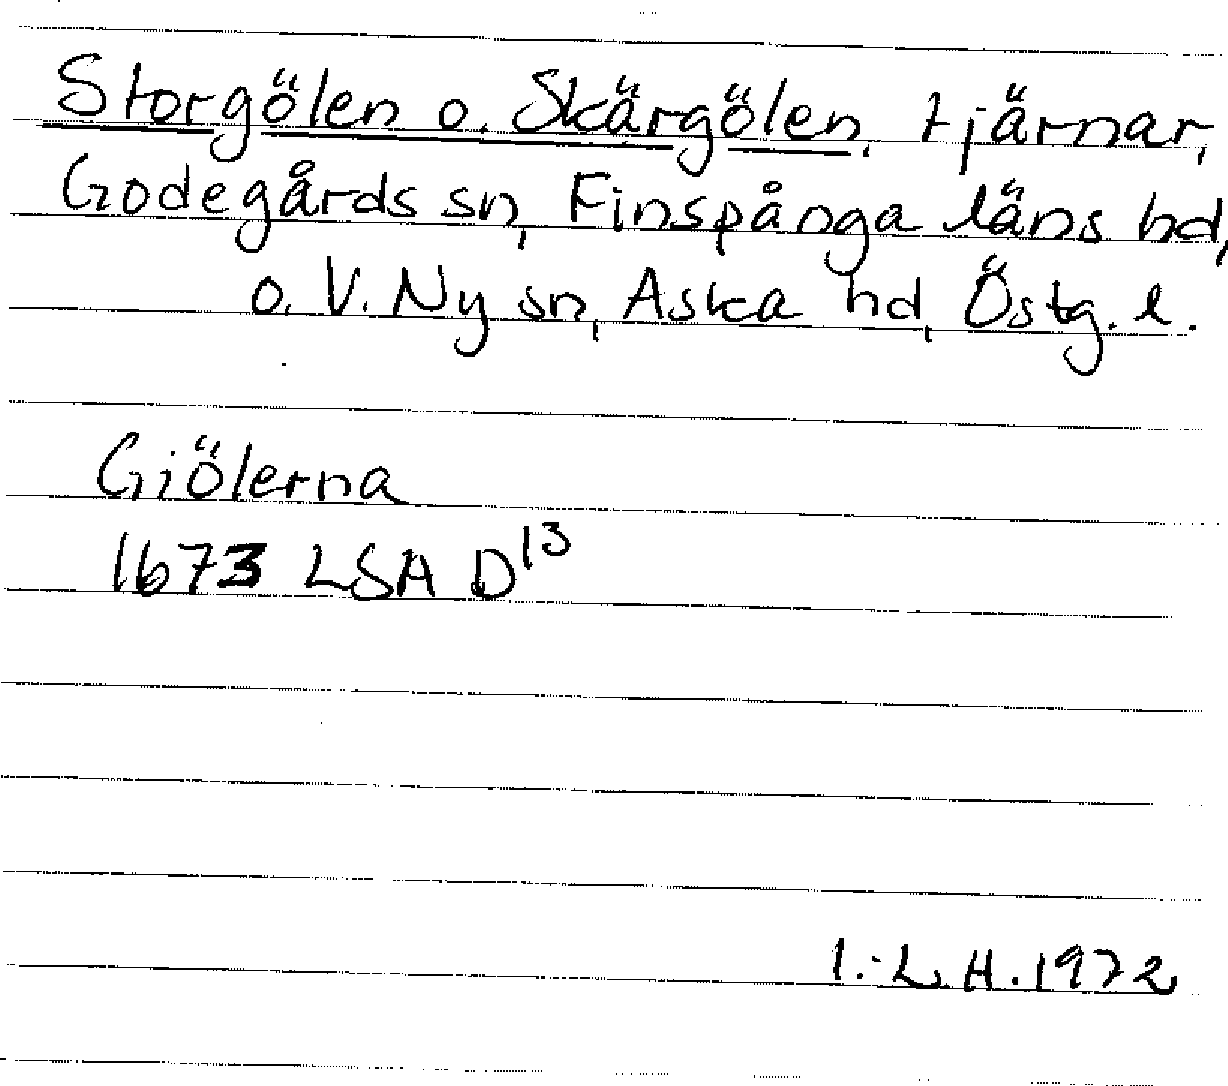 Storgölen o. Skärgölen, tjärnar,
Godegårds sn, Finspånga läns hd,
o. V. Ny sn, Aska hd, Östg. l.
Giölerna
1673 LSA D¹³
I.-L. H. 1972